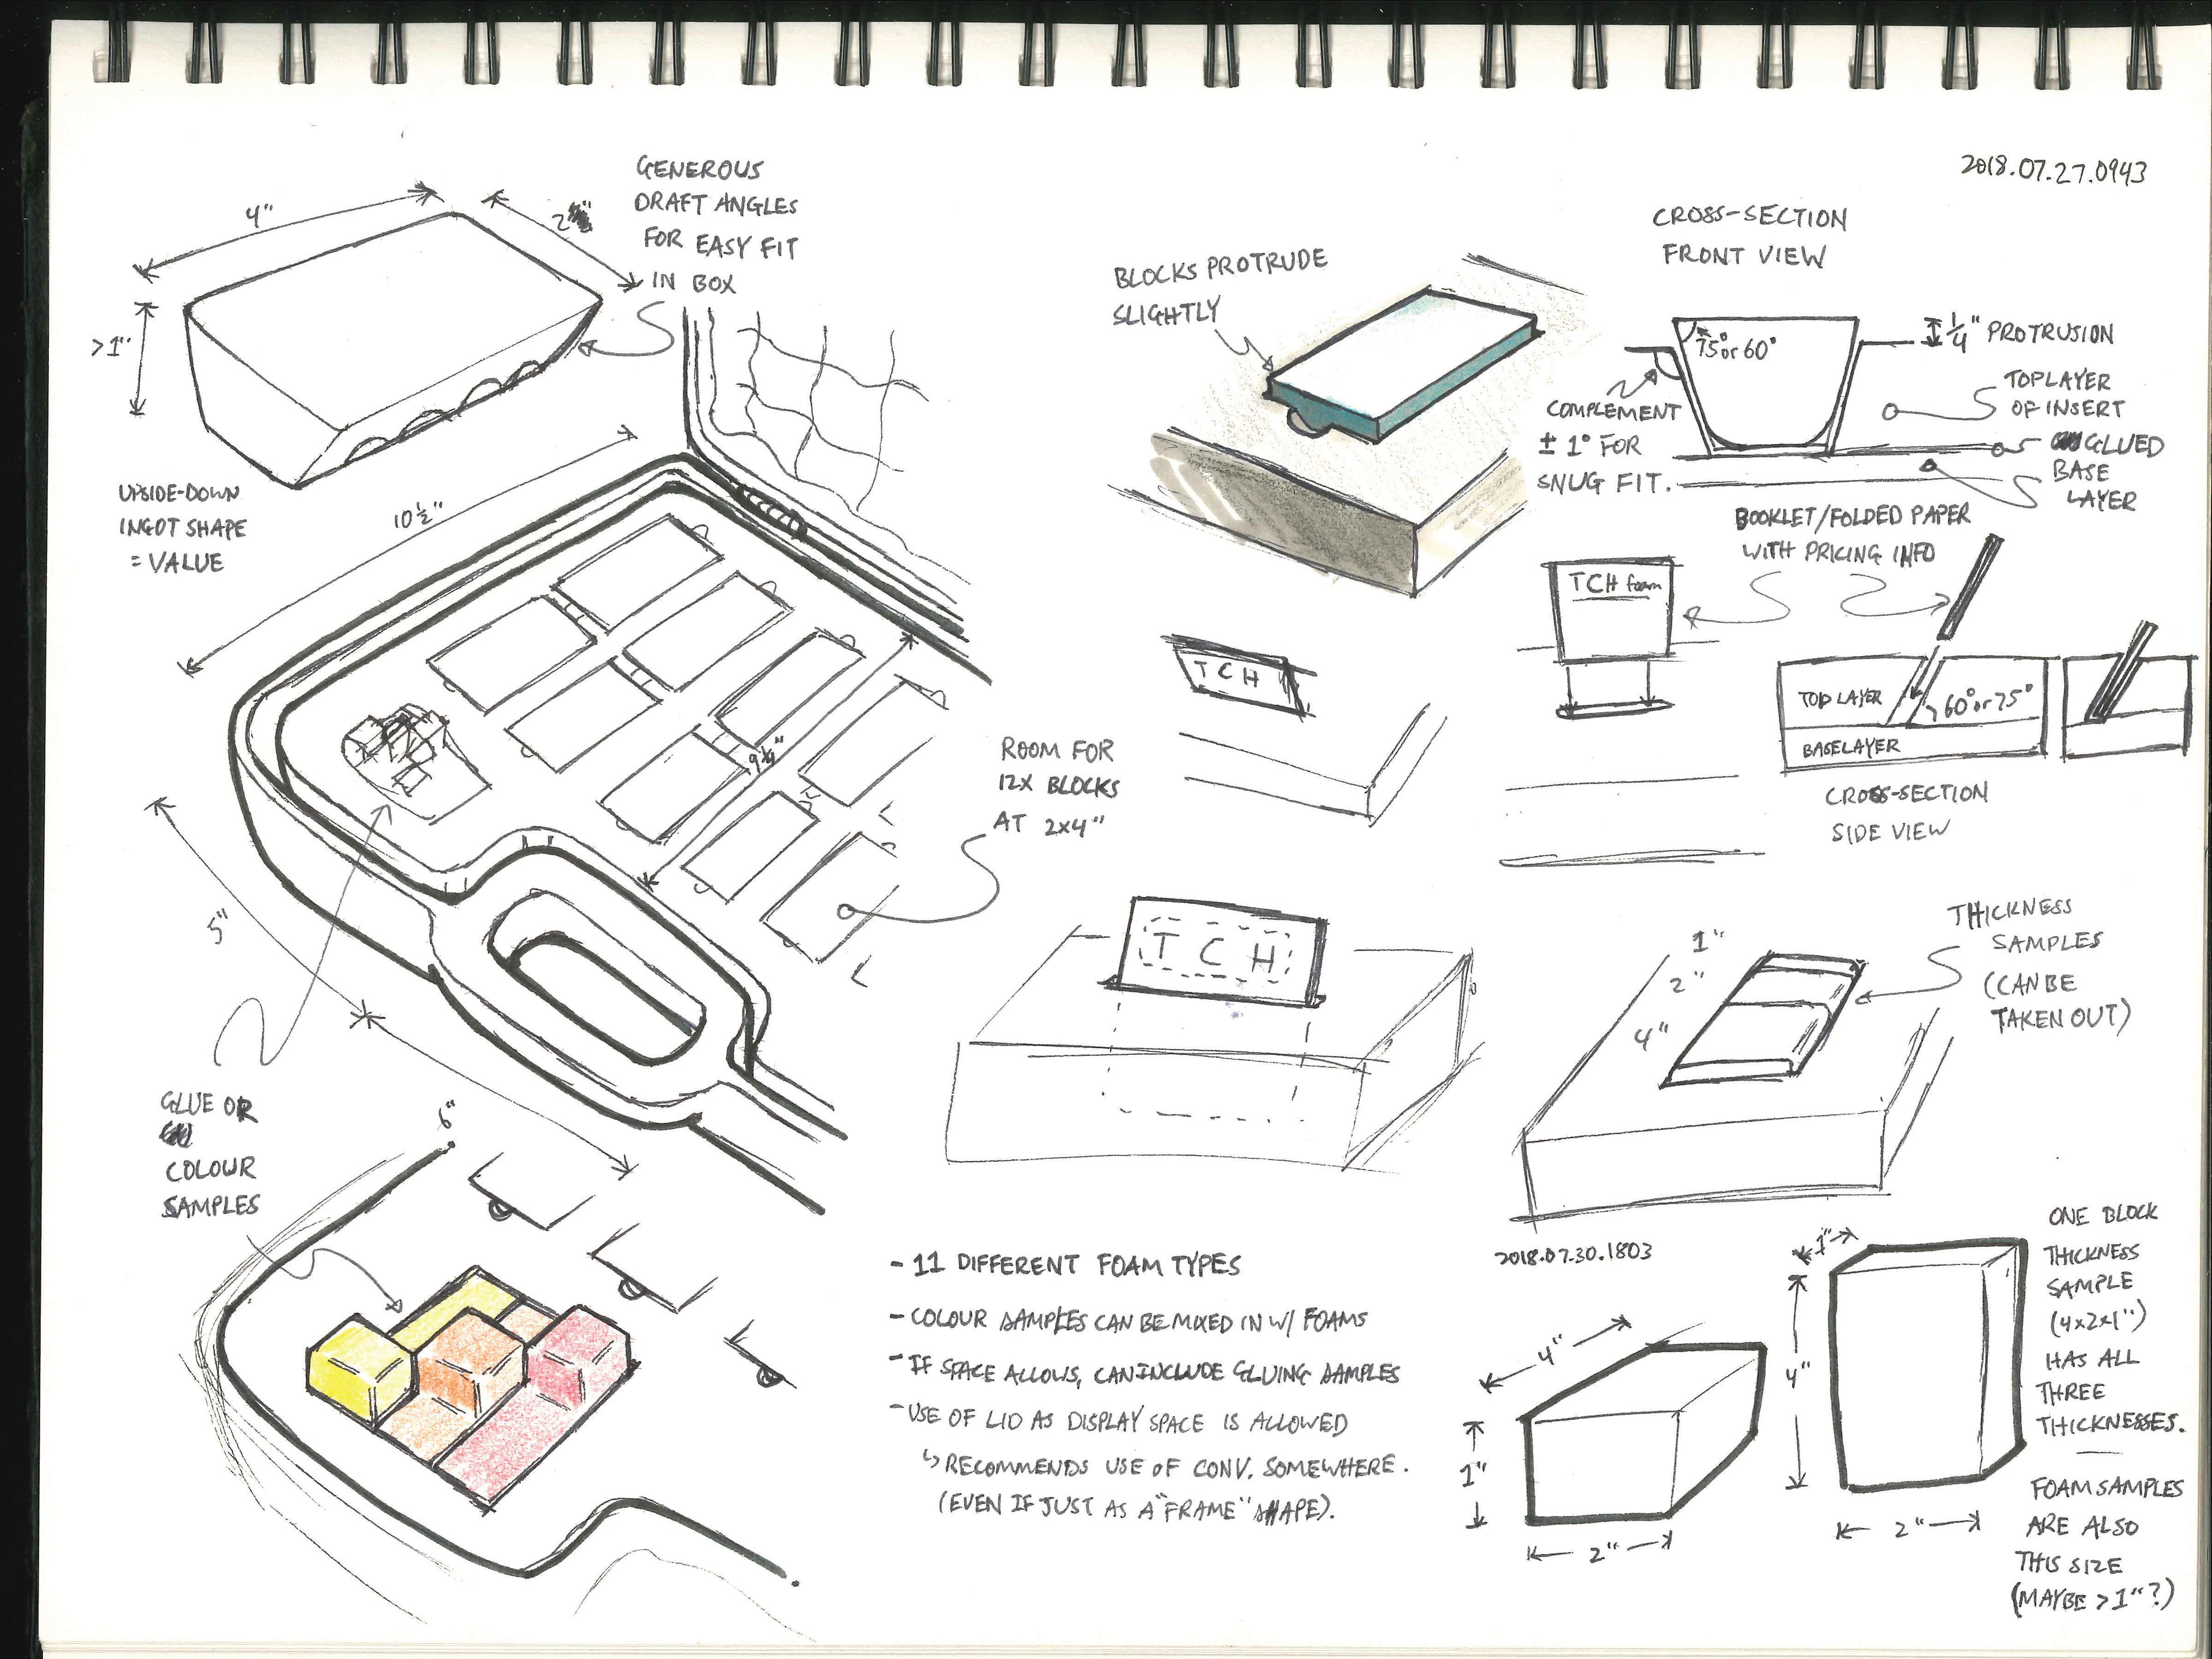 2018.07.27.0943
4"
2"
>1"
GENEROUS
DRAFT ANGLES
FOR EASY FIT
IN BOX
UPSIDE-DOWN
INGOT SHAPE
= VALUE
10 1/2"
9 1/4"
5"
6"
ROOM FOR
12X BLOCKS
AT 2x4"
GLUE OR
COLOUR
SAMPLES
BLOCKS PROTRUDE
SLIGHTLY
CROSS-SECTION
FRONT VIEW
75° or 60°
1/4" PROTRUSION
COMPLEMENT
± 1° FOR
SNUG FIT.
TOP LAYER
OF INSERT
GLUED
BASE
LAYER
BOOKLET/FOLDED PAPER
WITH PRICING INFO
TCH foam
TCH
TOP LAYER
60° or 75°
BASELAYER
CROSS-SECTION
SIDE VIEW
TCH
1"
2"
4"
THICKNESS
SAMPLES
(CAN BE
TAKEN OUT)
- 11 DIFFERENT FOAM TYPES
- COLOUR SAMPLES CAN BE MIXED IN W/ FOAMS
- IF SPACE ALLOWS, CAN INCLUDE GLUING SAMPLES
- USE OF LID AS DISPLAY SPACE IS ALLOWED
↳ RECOMMENDS USE OF CONV. SOMEWHERE.
(EVEN IF JUST AS A "FRAME" SHAPE).
2018.07.30.1803
4"
1"
2"
1"
4"
2"
ONE BLOCK
THICKNESS
SAMPLE
(4x2x1")
HAS ALL
THREE
THICKNESSES.
—
FOAM SAMPLES
ARE ALSO
THIS SIZE
(MAYBE >1"?)